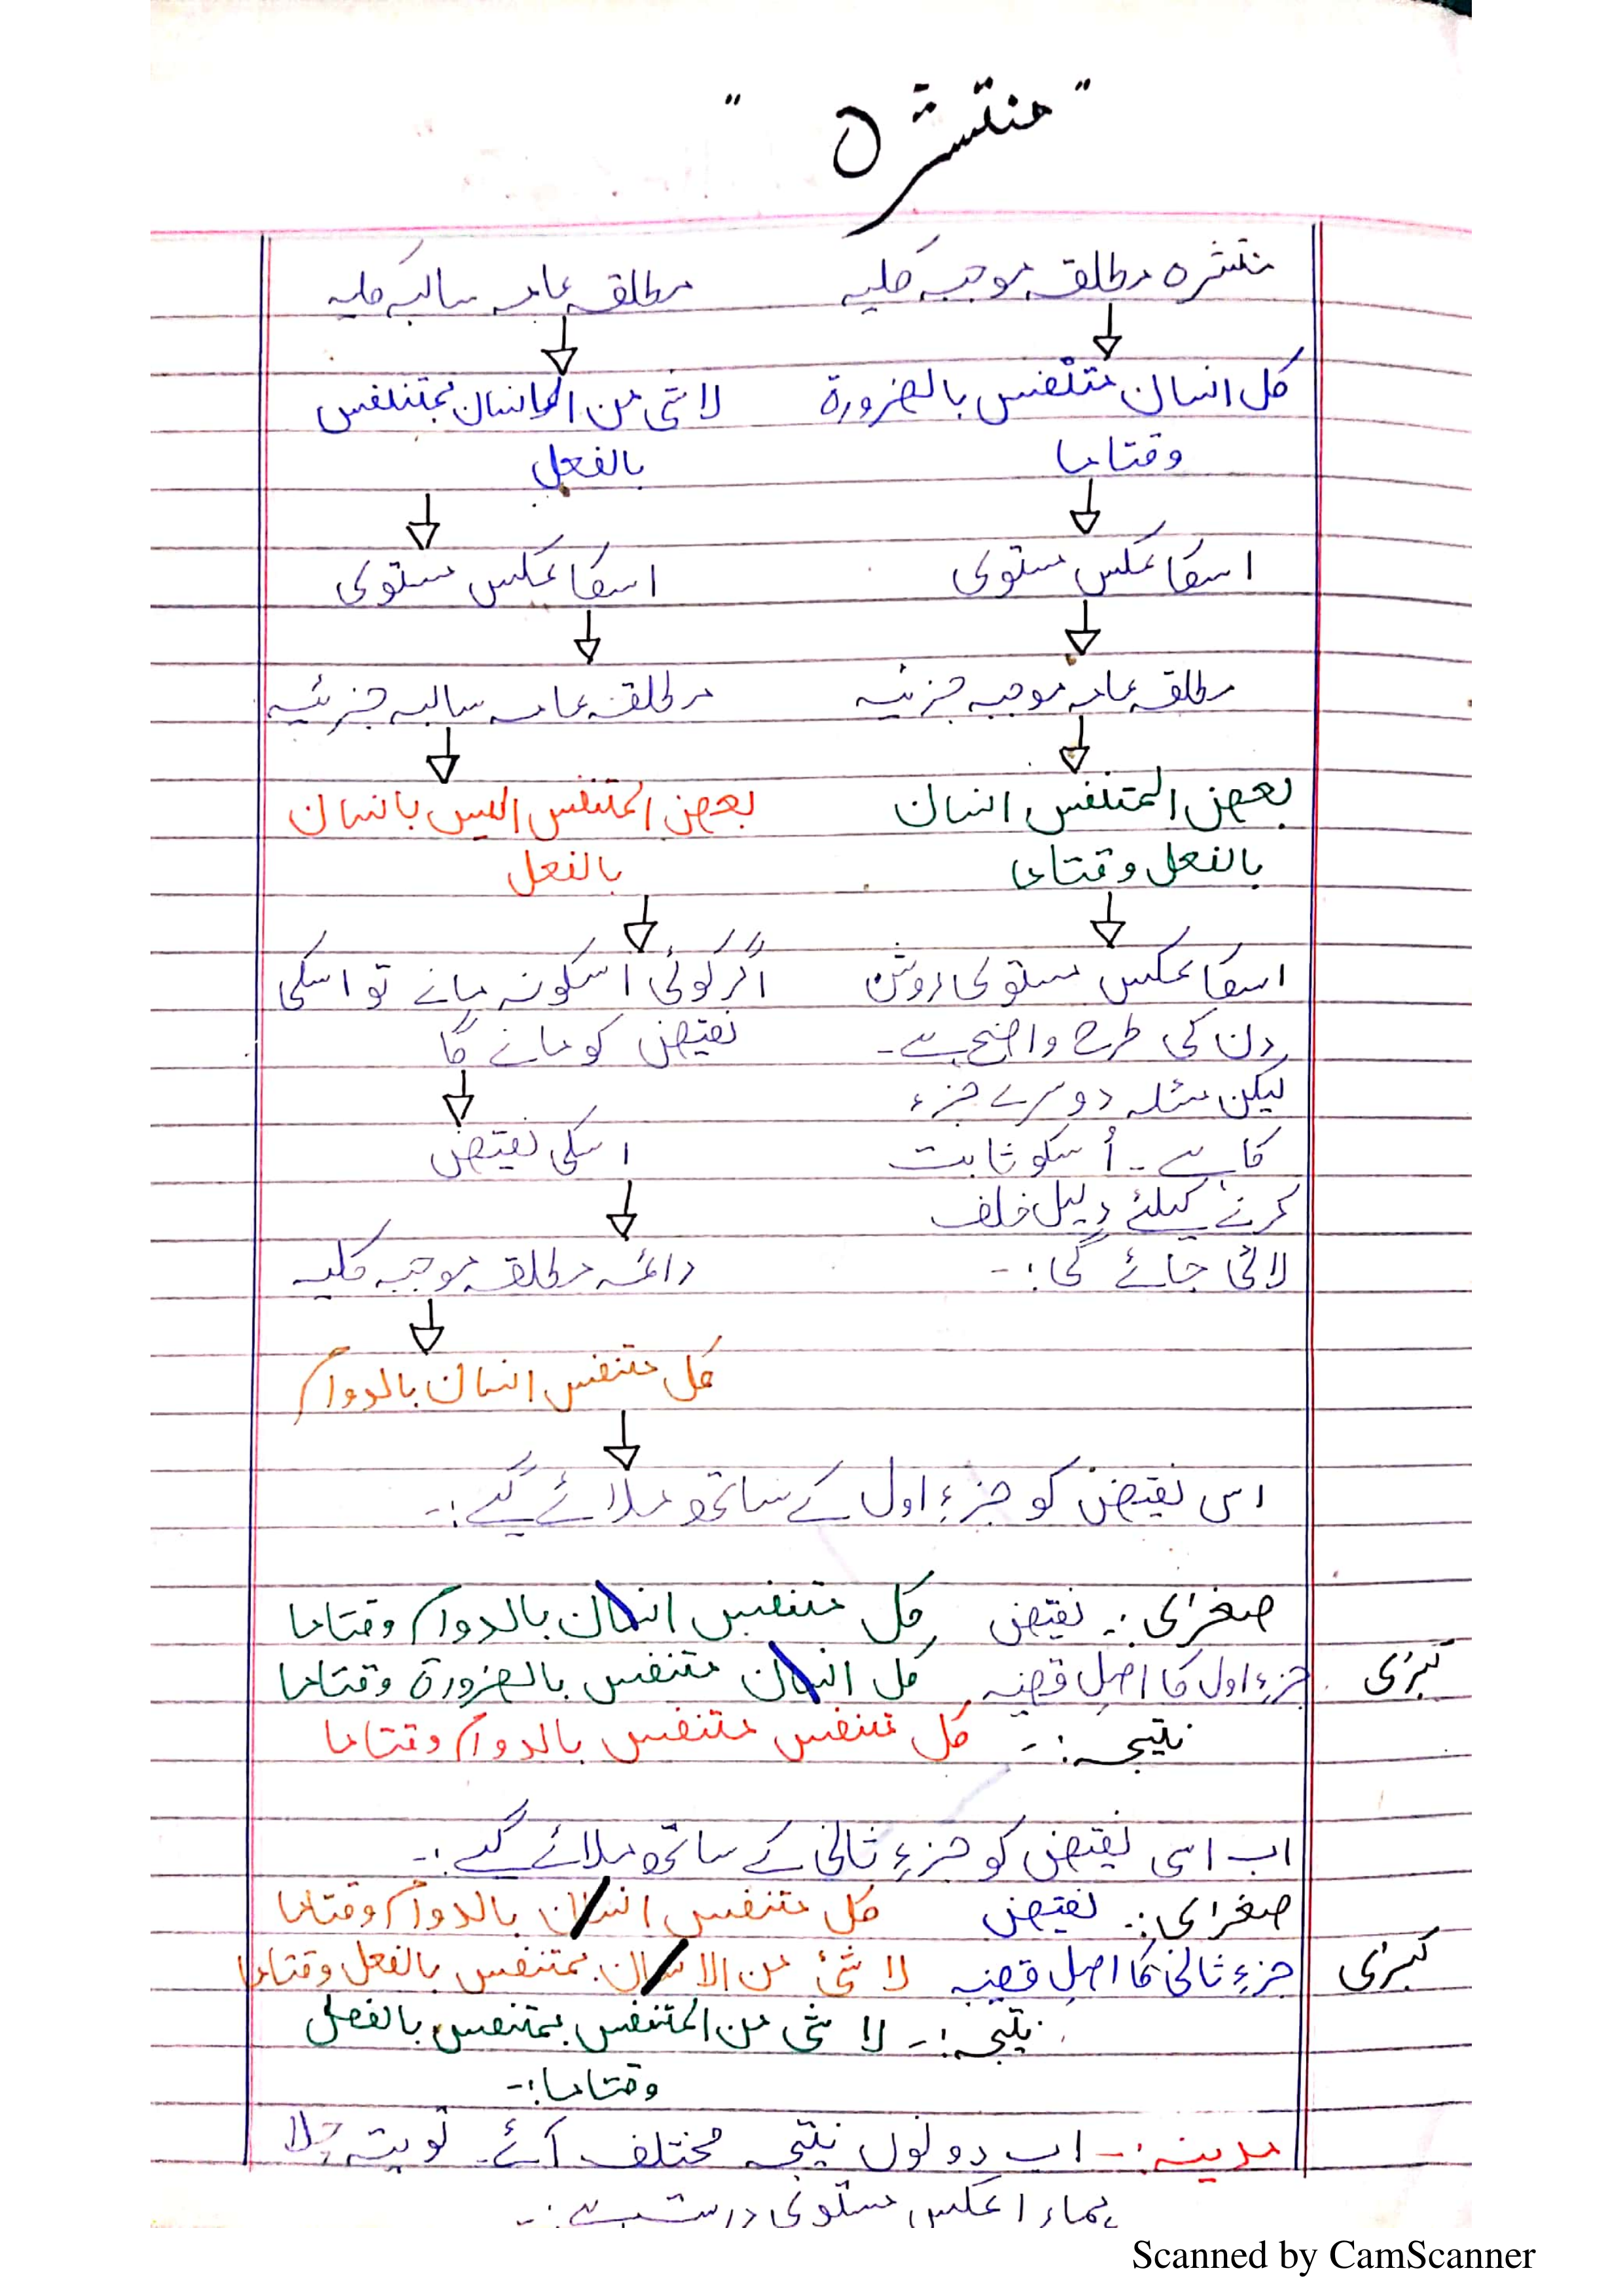 "منتشرہ"
منتشرہ مطلقہ موجبہ کلیہ
مطلقہ عامہ سالبہ کلیہ
کل انسان متنفس بالضرورۃ
وقتاما
لا شئ من الانسان بمتنفس
بالفعل
اسکا عکس مستوی
اسکا عکس مستوی
مطلقہ عامہ موجبہ جزئیہ
مطلقہ عامہ سالبہ جزئیہ
بعض المتنفس انسان
بالفعل وقتاما
بعض المتنفس الیس بانسان
بالفعل
اسکا عکس مستوی روشن
دن کی طرح واضح ہے۔
لیکن مسئلہ دوسرے جزء
کا ہے۔ اُسکو ثابت
کرنے کیلئے دلیل خلف
لائی جائے گی:-
اگر کوئی اسکو نہ مانے تو اسکی
نقیض کو مانے گا
اسکی نقیض
دائمہ مطلقہ موجبہ کلیہ
کل متنفس انسان بالدوام
اس نقیض کو جزءِ اول کے ساتھ ملائے گے:-
صغرٰی:- نقیض کل متنفس انسان بالدوام وقتاما
کبرٰی جزءِ اول کا اصل قضیہ کل انسان متنفس بالضرورۃ وقتاما
نتیجہ:- کل متنفس متنفس بالدوام وقتاما
اب اسی نقیض کو جزءِ ثانی کے ساتھ ملائے گے:-
صغرٰی:- نقیض کل متنفس انسان بالدوام وقتاما
کبرٰی جزءِ ثانی کا اصل قضیہ لا شئ من الانسان بمتنفس بالفعل وقتاما
نتیجہ:- لا شئ من المتنفس بمتنفس بالفعل
وقتاما:-
مدینہ:- اب دونوں نتیجہ مختلف آئے۔ تو پتہ چلا
ہمارا عکس مستوی درست ہے:-
Scanned by CamScanner